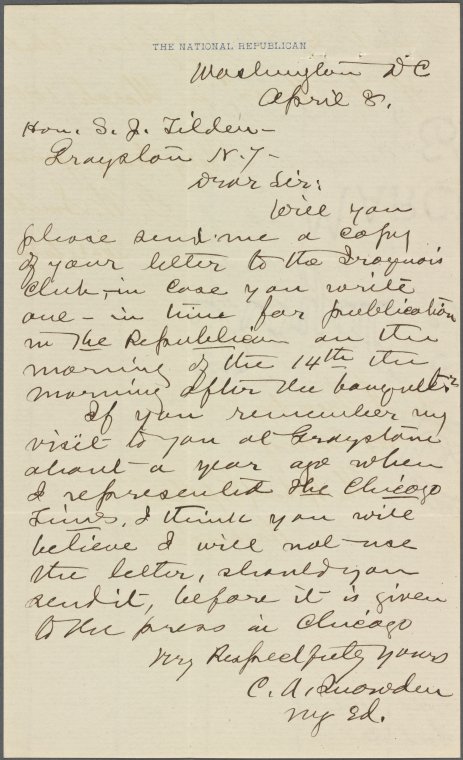 THE NATIONAL REPUBLICAN
Washington DC
April 8.
Hon. S. J. Tilden -
Graystone N.Y-
Dear Sir:
Will you
please send me a copy
of your letter to the Iroquois
Club, in case you write
one - in time for publication
in The Republican on the
morning of the 14th the
morning after the banquet.
If you remember my
visit to you at Graystone
about a year ago when
I represented The Chicago
Times, I think you will
believe I will not use
the letter, should you
send it, before it is given
to the press in Chicago
Very Respectfully Yours
C. A. Snowden
Mg Ed.